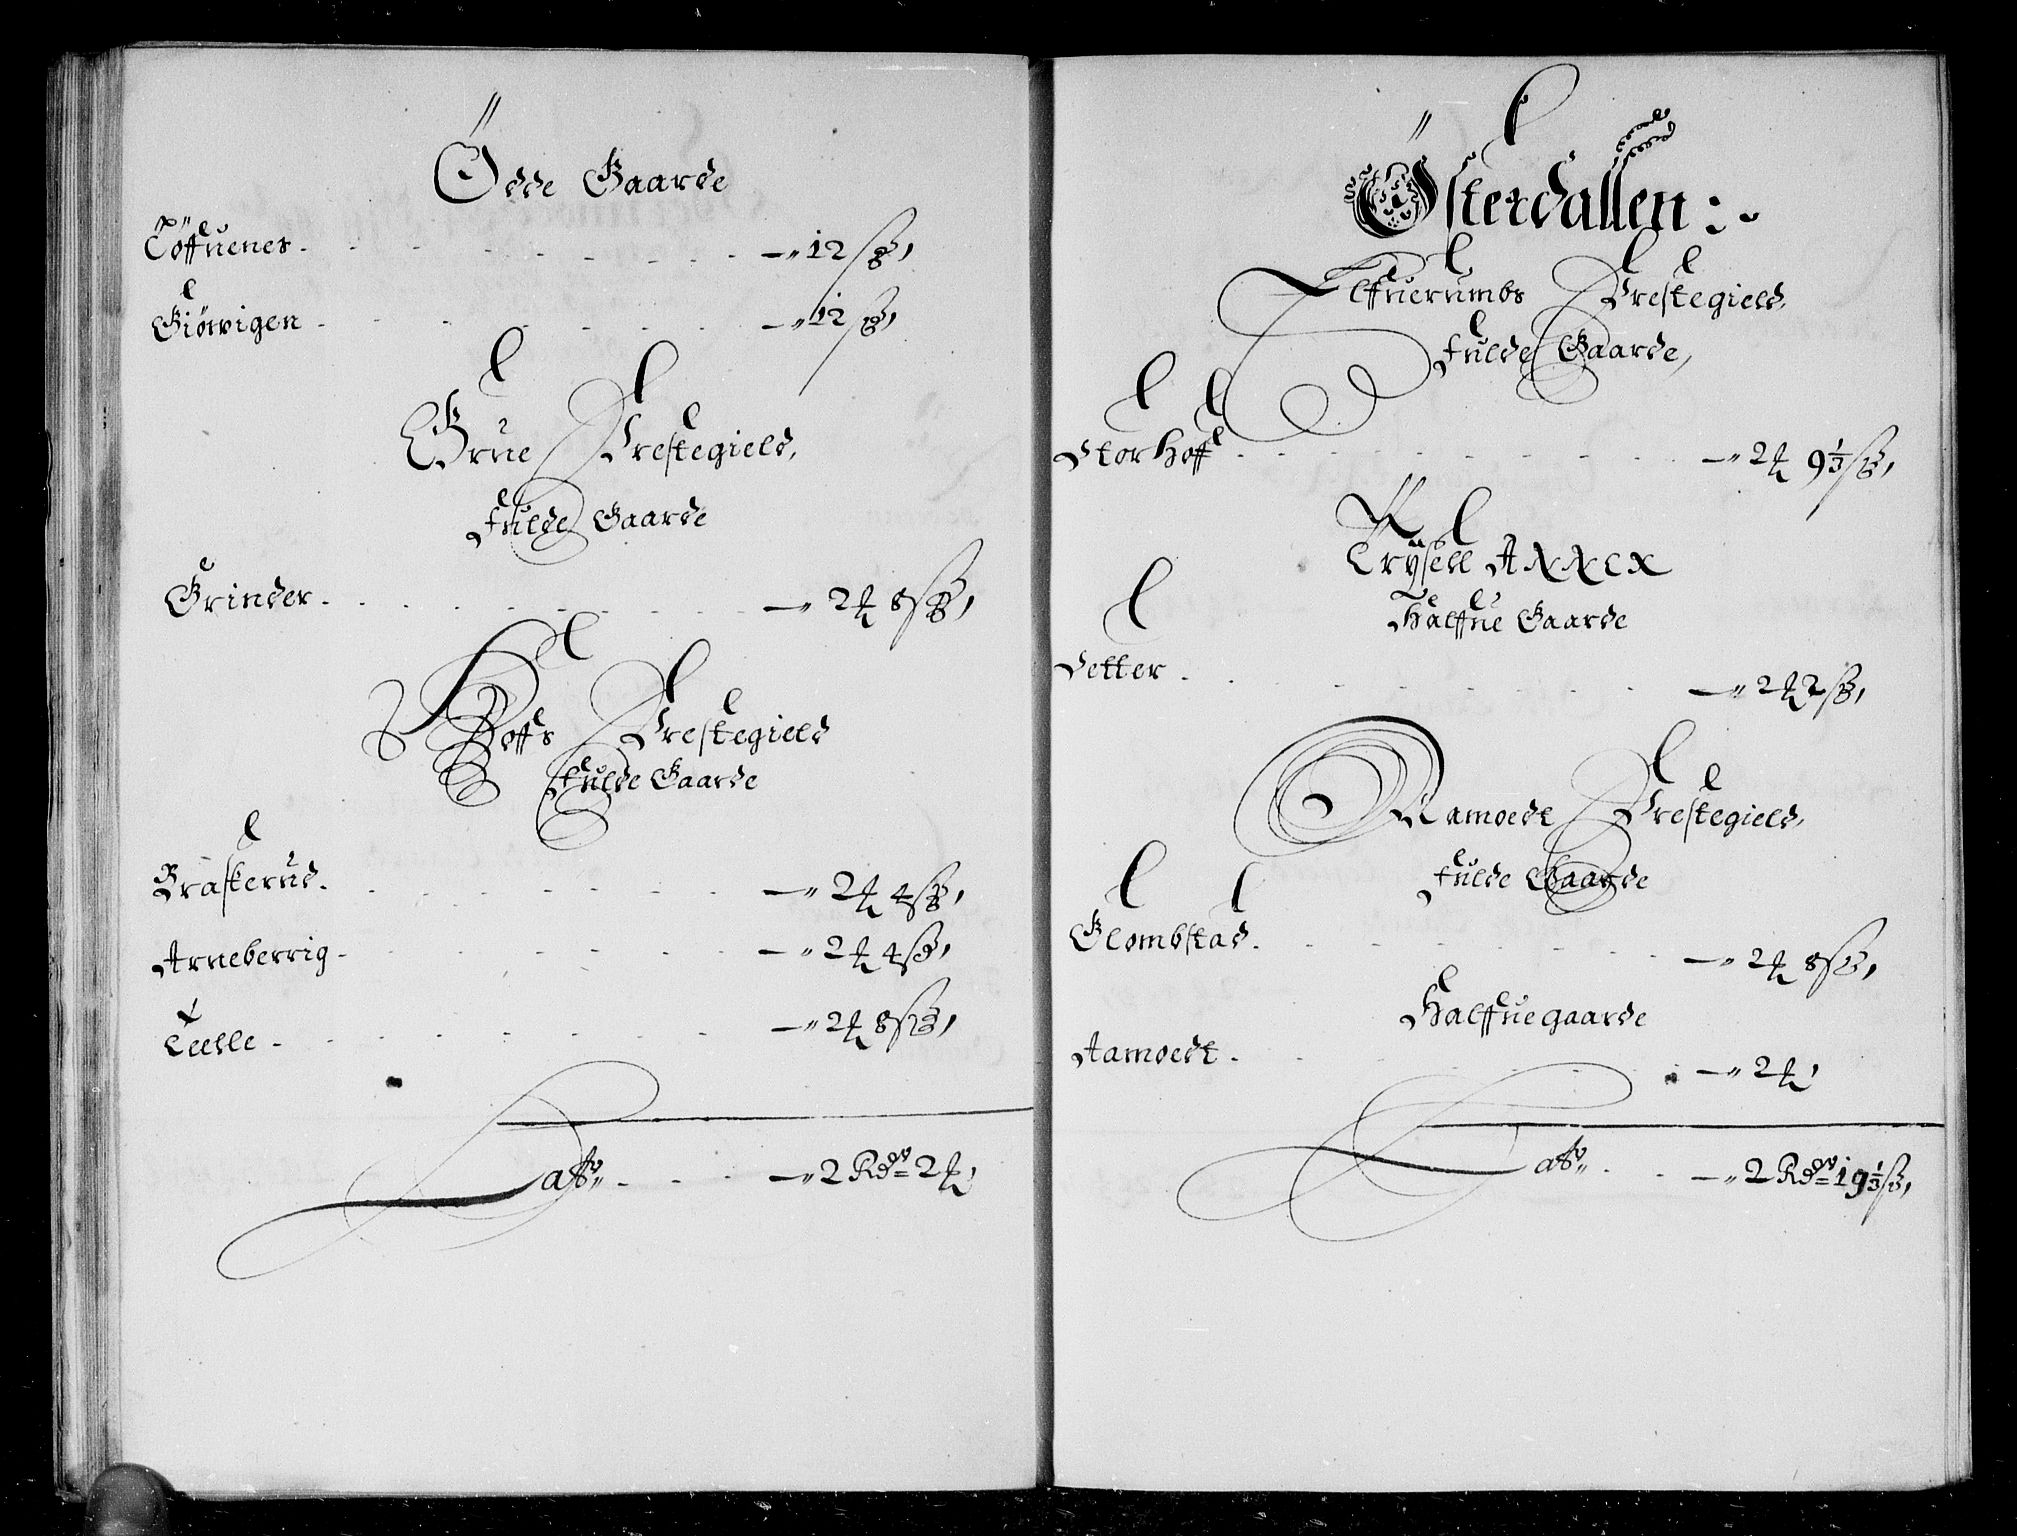 Ödde Gaarde
Töffuenes - 12 ß,
Giörvigen - 12 ß,
Grue Prestegield,
fulde Gaarde
Grinder - 2 ₰ 8 ß,
Hoffs Prestegield
fulde Gaarde
Braskerud - 2 ₰ 4 ß,
Arneberrig - 2 ₰ 4 ß,
- 2 ₰ 8 ß,
Lats - 2 Rdr 2 ₰,
Österdallen:
Elffuerumbs Prestegield,
fulde Gaarde,
Storhoff - 2 ₰ 9⅓ ß,
Trÿsell Annex
Halffue Gaarde
Setter - 2 ₰ 2 ß,
Aamoedt Prestegield,
fulde Gaarde
Glombstad - 2 ₰ 8 ß,
Halffue gaarde
Aamoedt - 2 ₰,
Lats - 2 Rdr 19⅓ ß,